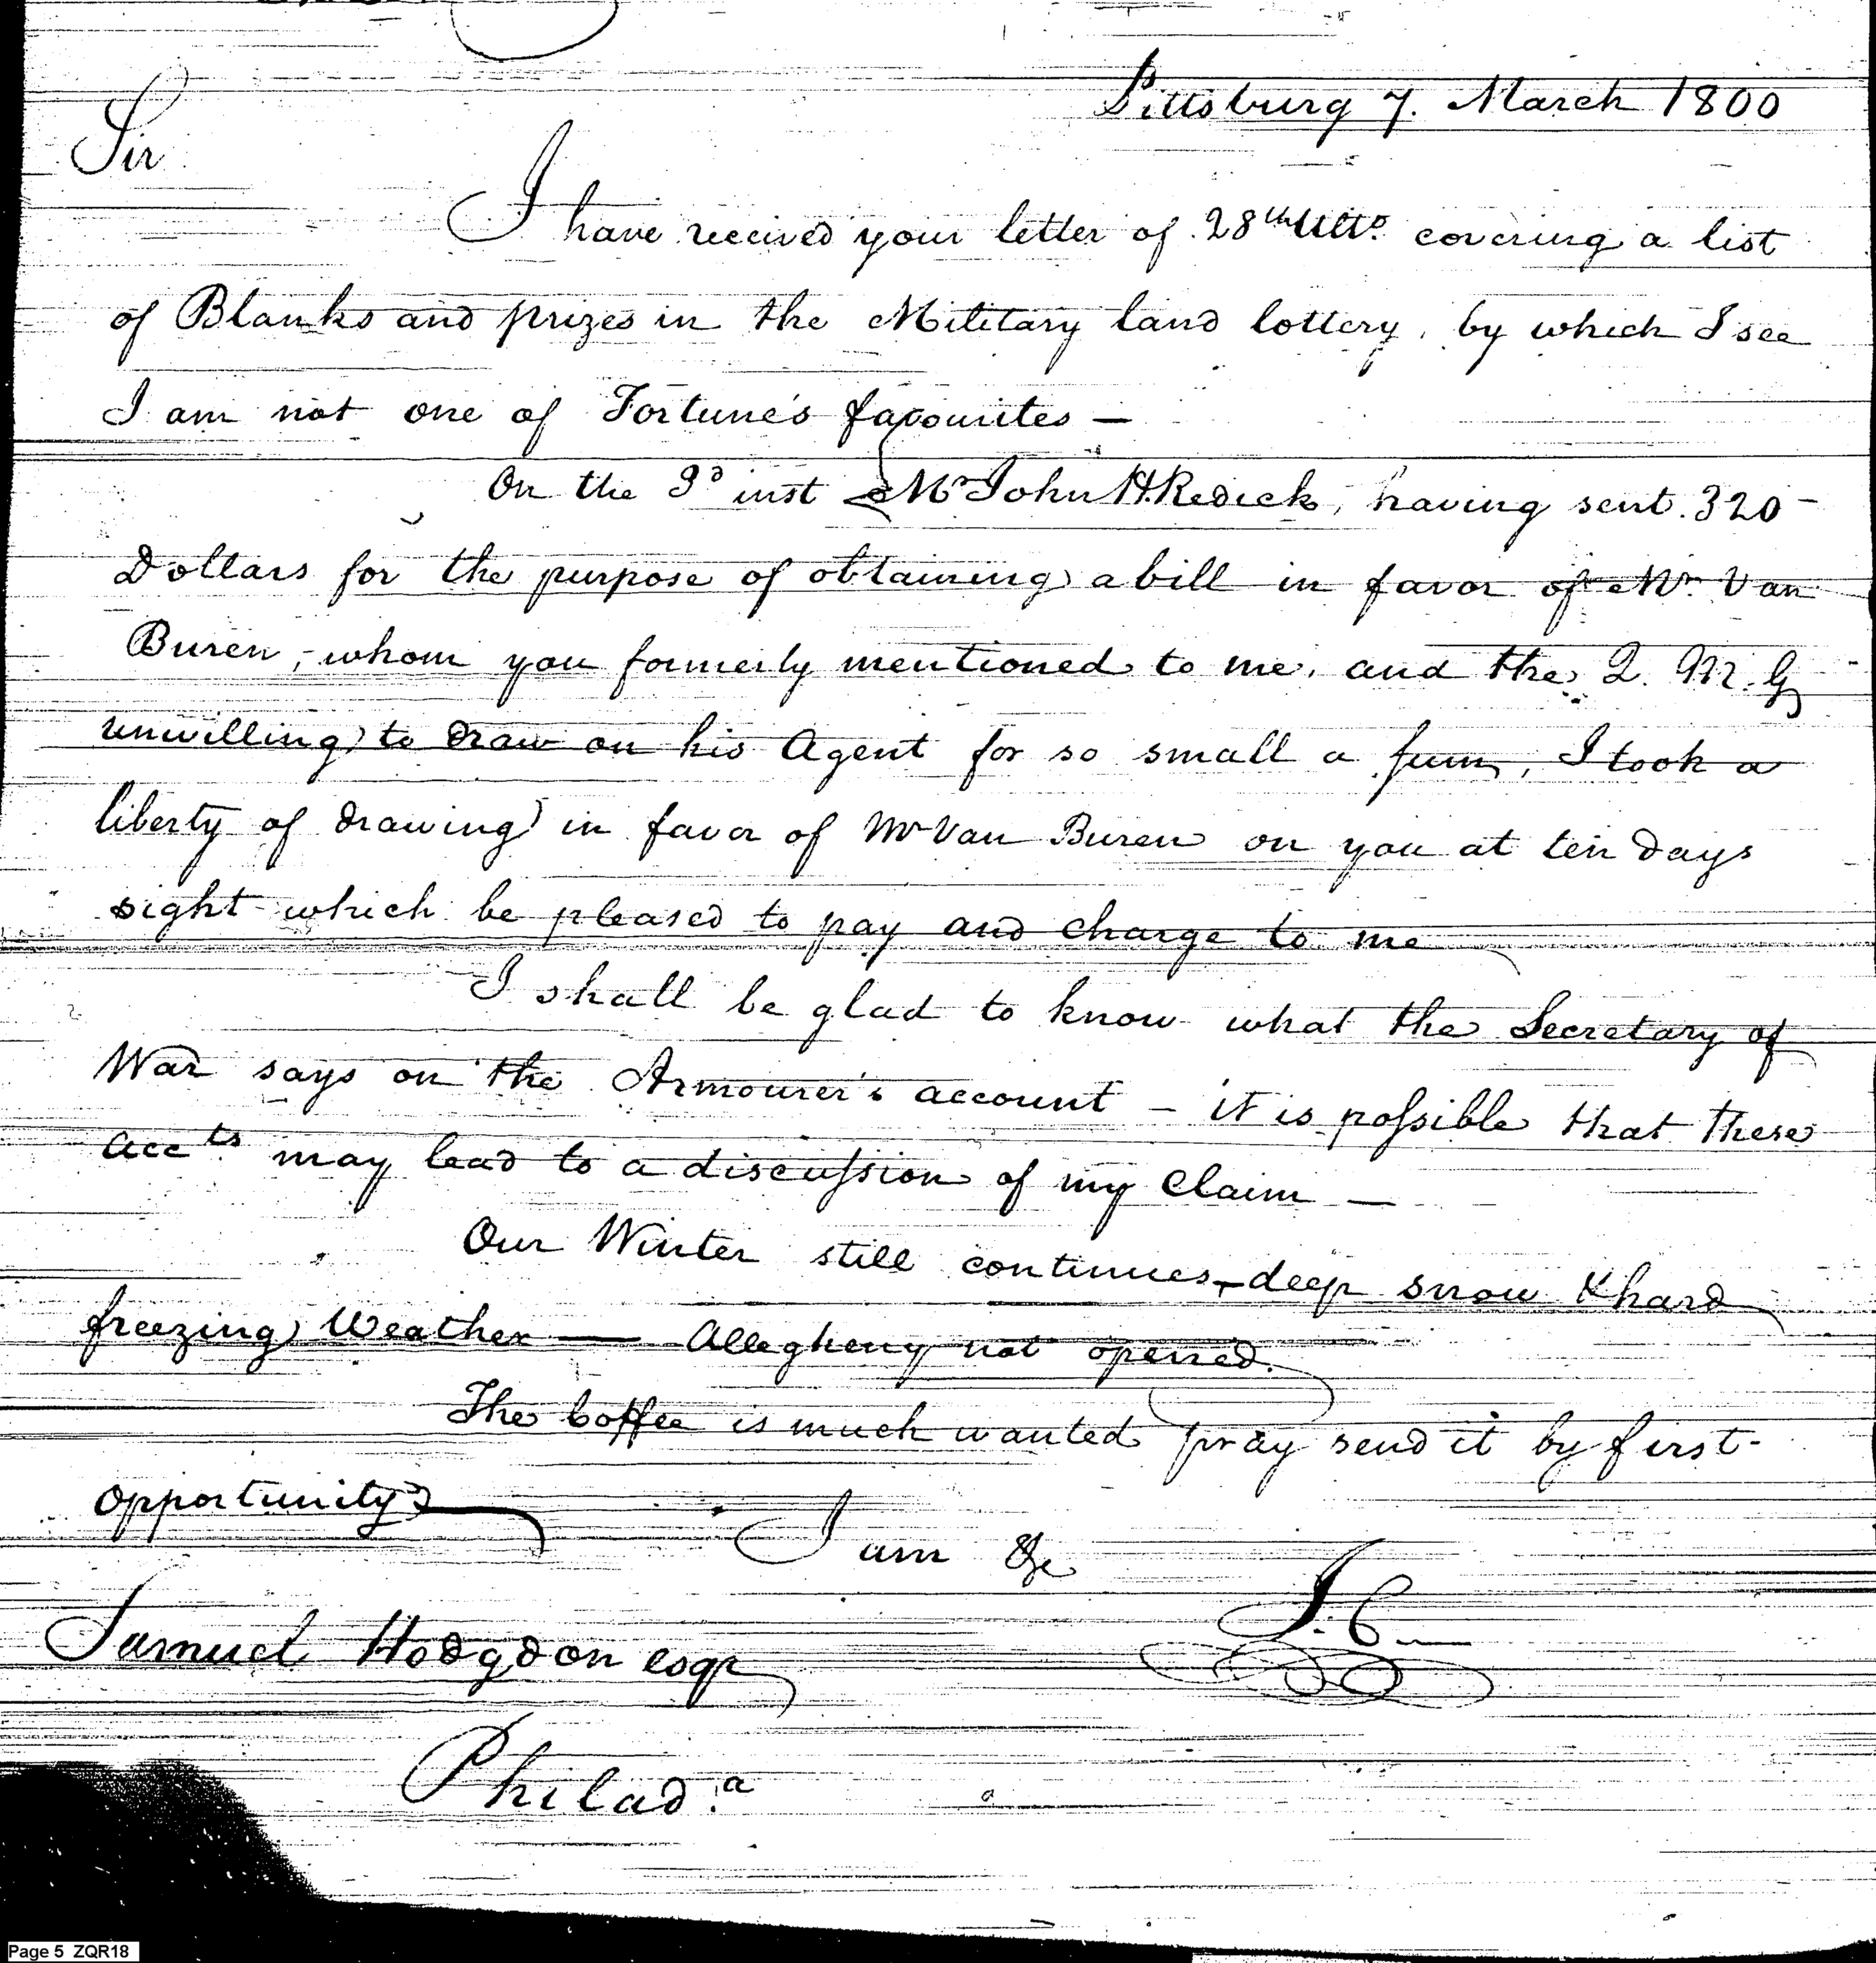 Pittsburg 7. March 1800
Sir
I have received your letter of 28th Ulto. covering a list
of Blanks and prizes in the Military land lottery, by which I see
I am not one of Fortune's favourites —
On the 3d inst Mr John H. Redick, having sent 320
Dollars for the purpose of obtaining a bill in favor of Mr. Van
Buren, whom you formerly mentioned to me, and the Q. M. G
unwilling to draw on his Agent for so small a sum, I took a
liberty of drawing in favor of Mr Van Buren on you at ten days
sight which be pleased to pay and charge to me
I shall be glad to know what the Secretary of
War says on the Armourer's account – it is possible that these
accts may lead to a discussion of my claim —
Our Winter still continues – deep snow & hard
freezing Weather — Allegheny not opened.
The Coffee is much wanted pray send it by first
opportunity
I am &c
J. C.
Samuel Hodgdon esqr
Philad.a
Page 5 ZQR18